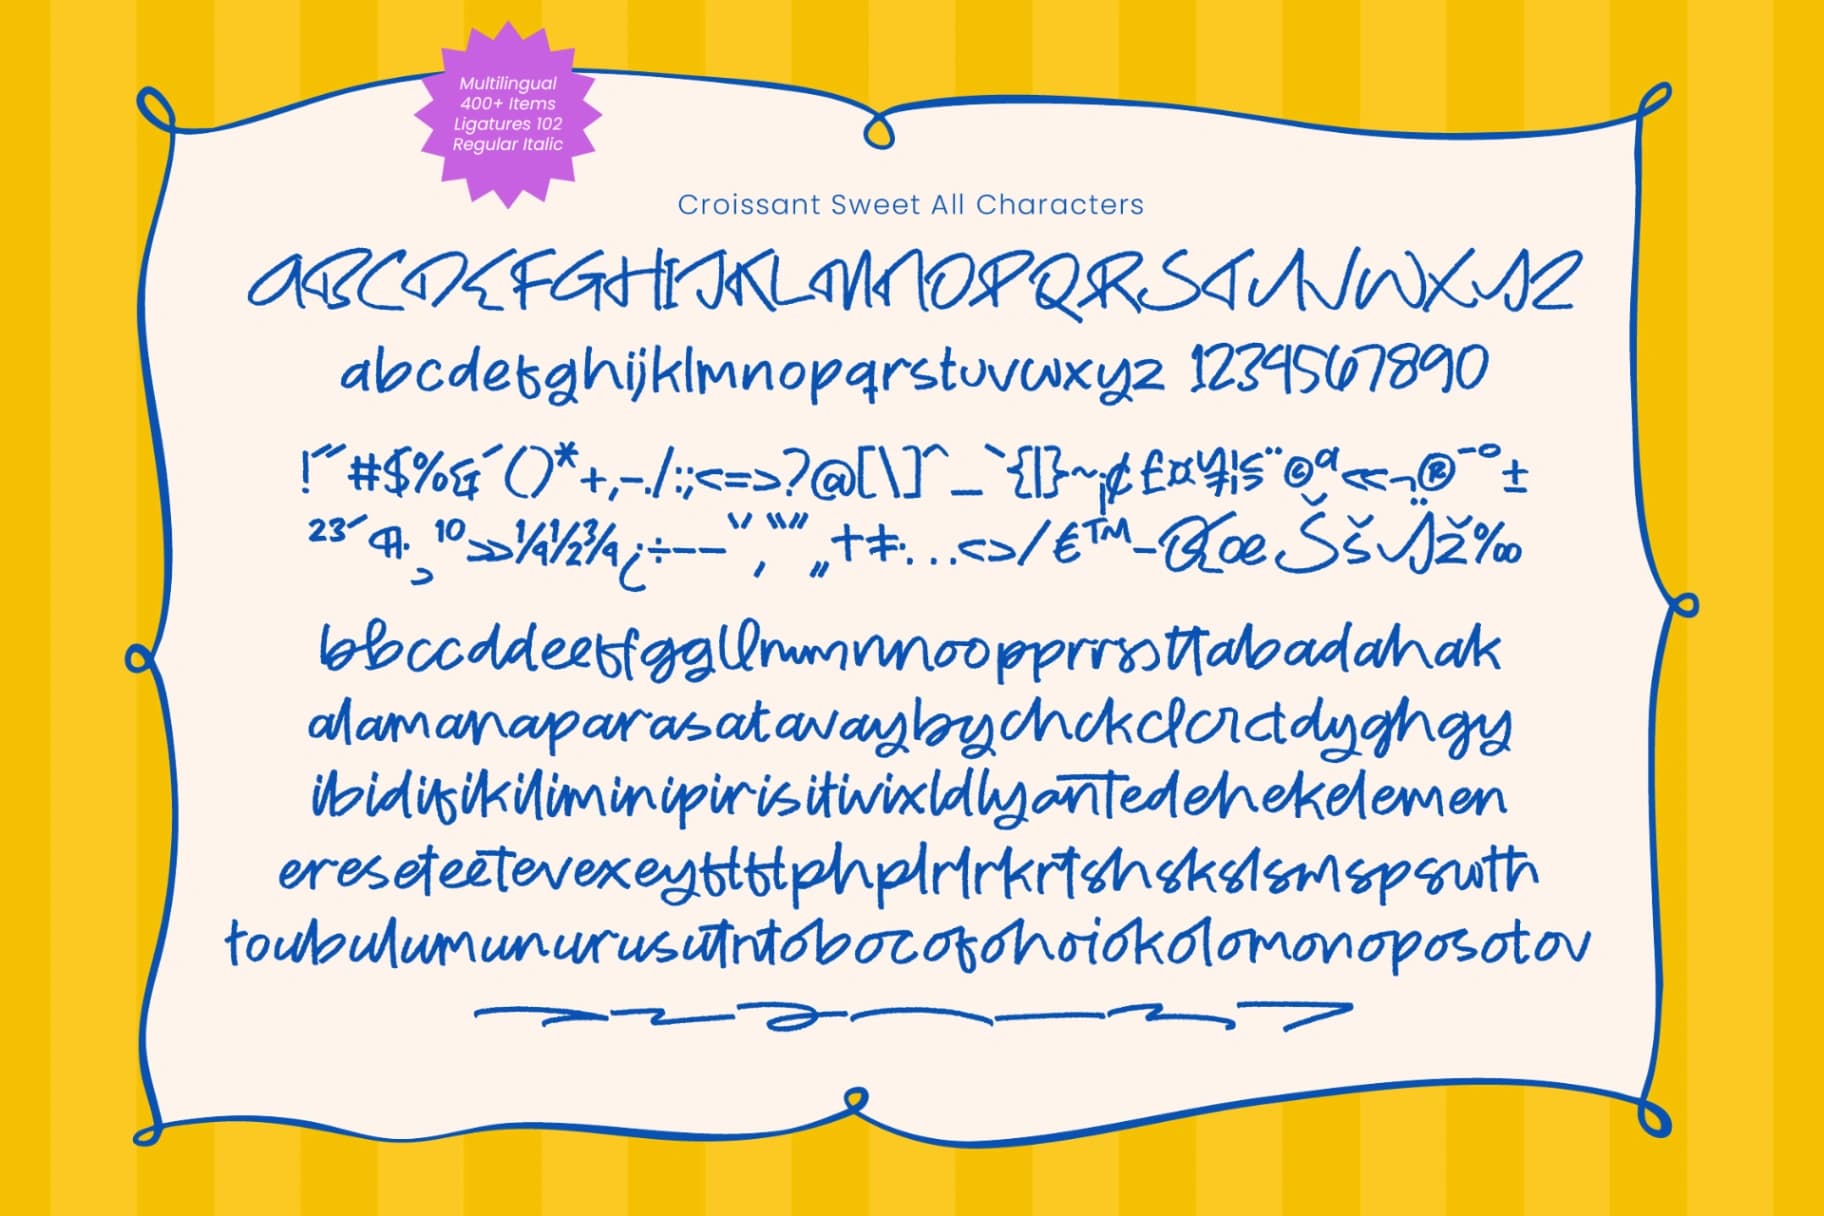 Multilingual
400+ Items
Ligatures 102
Regular Italic
Croissant Sweet All Characters
ABCDEFGHIJKLMNOPQRSTUVWXYZ
abcdefghijklmnopqrstuvwxyz 1234567890
!"#$%&'()*+,-./:;<=>?@[\]^_`{|}~¡¢£¤¥¦§¨©ª«¬®¯°±
²³´¶·¸¹º»¼½¾¿÷–—‘’‚“”„†‡•…‹›/€™−ŒœŠšŽž‰
bbccddeeffggllmmnnoopprrssttabadahak
alamanaparasatavaybychckclcrctdyghgy
ibidifikiliminipirisitivixldlyantedehekelemen
ereseteetevexeyftftphplrlrkrtshskslsmspswth
toubulumunurusutntobocofohoiokolomonoposotov